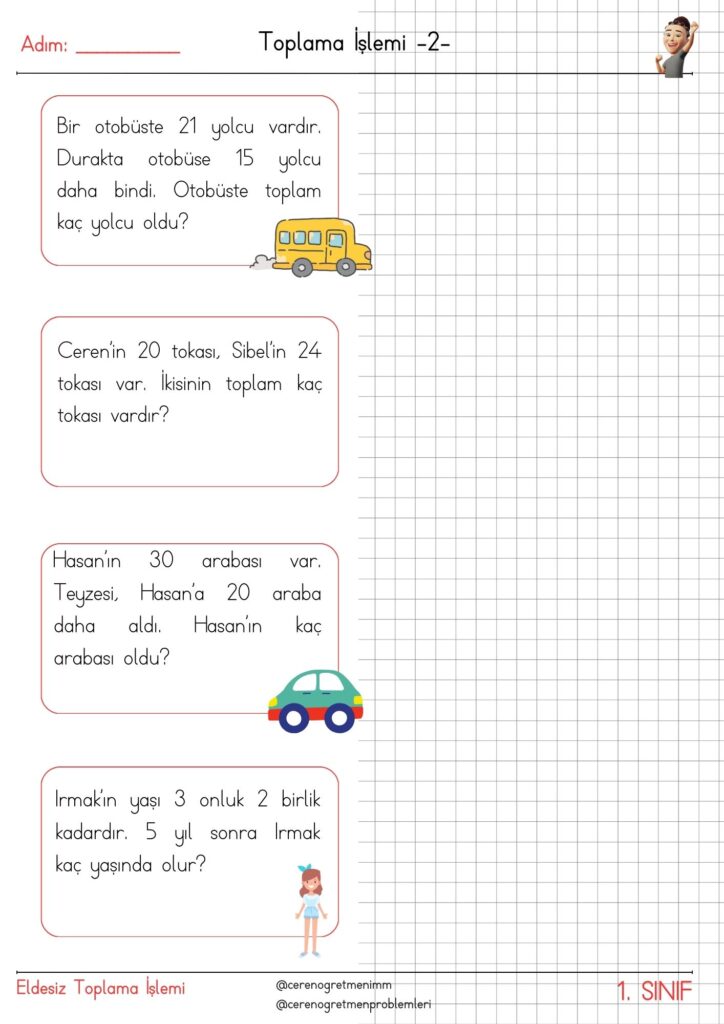 Adım: __________
Toplama İşlemi -2-
Bir otobüste 21 yolcu vardır.
Durakta otobüse 15 yolcu
daha bindi. Otobüste toplam
kaç yolcu oldu?
Ceren'in 20 tokası, Sibel'in 24
tokası var. İkisinin toplam kaç
tokası vardır?
Hasan'ın 30 arabası var.
Teyzesi, Hasan'a 20 araba
daha aldı. Hasan'ın kaç
arabası oldu?
Irmak'ın yaşı 3 onluk 2 birlik
kadardır. 5 yıl sonra Irmak
kaç yaşında olur?
Eldesiz Toplama İşlemi
@cerenogretmenimm
@cerenogretmenproblemleri
1. SINIF